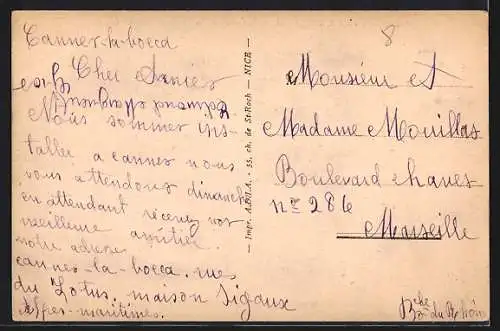 Cannes-la-bocca
Cher Amies
Nous sommes ins-
taller a cannes nous
vous attendons dimanche
en attendant recevez nos
meilleure amitier.
notre adresse
cannes-la-bocca. rue
du Lotus. maison Sigaux
Alpes-maritimes.
Impr. ADIA. - 55, ch. de St-Roch - NICE
8
Monsieur et
Madame Mouillas
Boulevard chaves
n° 286
Marseille
Bche du Rhône